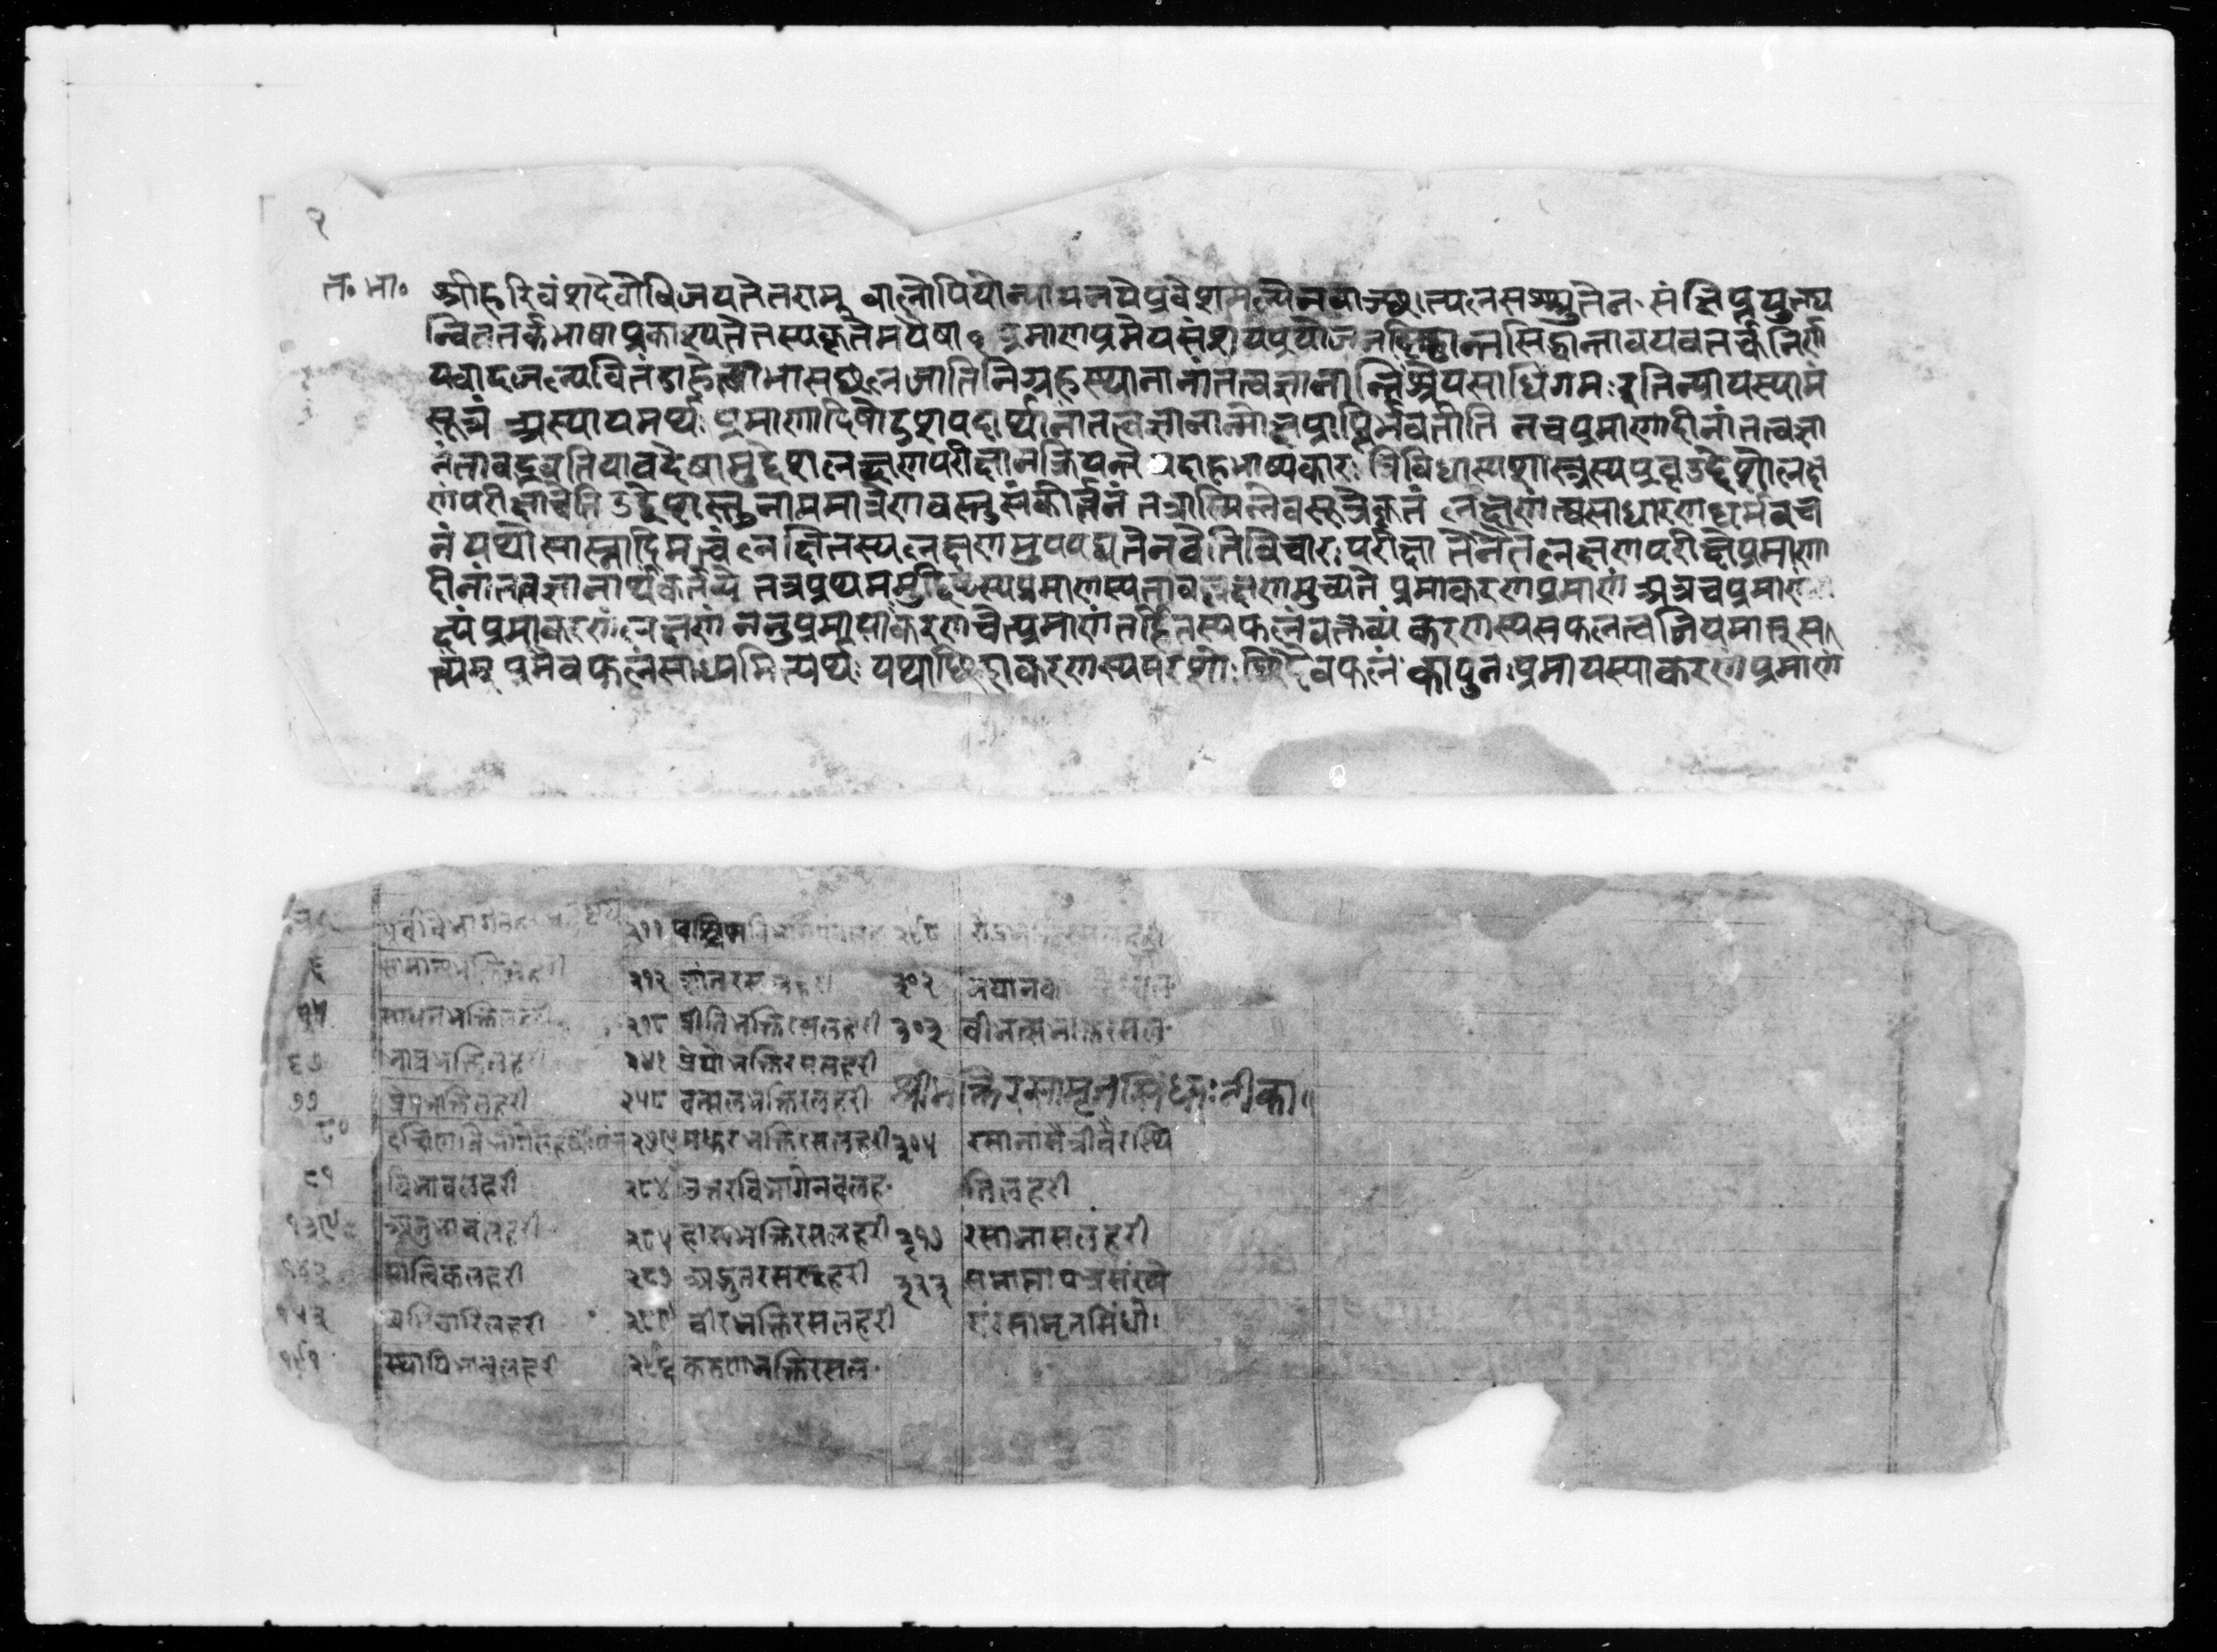 १
त॰ भा॰
श्रीहरिवंशदेवोविजयतेतराम् वालोपियोन्यायनयेप्रवेशमल्पेनवाञ्छत्यलसश्श्रुतेन संक्षिप्तयुक्त्य
न्विततर्कभाषाप्रकाश्यतेतस्यकृतेमयैषा १ प्रमाणप्रमेयसंशयप्रयोजनदृष्टान्तसिद्धान्तावयवतर्कनिर्ण
यवादजल्पवितंडाहेत्वाभासछलजातिनिग्रहस्थानानांतत्वज्ञानान्निःश्रेयसाधिगमः इतिन्यायस्यादिमं
सूत्रं अस्यायमर्थः प्रमाणादिषोडशपदार्थानांतत्वज्ञानान्मोक्षप्राप्तिर्भवतीति नचप्रमाणादीनांतत्वज्ञा
नंतावद्भवतियावदेषामुद्देशलक्षणपरीक्षानक्रियन्ते यदाहभाष्यकारः त्रिविधास्यशास्त्रस्यप्रवृ उद्देशोलक्ष
णंपरीक्षाचेति उद्देशस्तुनाममात्रेणवस्तुसंकीर्तनं तच्चास्मिन्नेवसूत्रेकृतं लक्षणंत्वसाधारणधर्मवच
नं यथागोसास्नादिमत्वं लक्षितस्यलक्षणमुपपद्यतेनवेतिविचारः परीक्षा तेनैतेलक्षणपरीक्षेप्रमाणा
दीनांतत्वज्ञानार्थंकर्तव्ये तत्रप्रथममुद्दिष्टस्यप्रमाणस्यतावल्लक्षणमुच्यते प्रमाकरणंप्रमाणं अत्रचप्रमाणं
लक्ष्यं प्रमाकरणंलक्षणं ननुप्रमायांकरणंचेत्प्रमाणंतर्हितस्यफलंवक्तव्यं करणस्यसफलत्वनियमात् स
त्यम् प्रमैवफलंसाध्यमित्यर्थः यथाछिदाकरणस्यपरशोः छिदैवफलं कापुनःप्रमायस्याकरणंप्रमाणं
२११ पश्चिम
६ सामान्यभक्तिलहरी २१२ शांतरस ३०२ भयानक
१५ साधनभक्तिलहरी २१८ प्रीतिभक्तिरसलहरी ३०३ वीभत्सभक्तिरसल॰
६७ भावभक्तिलहरी २४१ प्रेयोभक्तिरसलहरी
श्रीभक्तिरसामृतसिंधुः
७७ प्रेमभक्तिलहरी २५८ वत्सलभक्तिरसलहरी
८० २७९ मधुरभक्तिरसलहरी ३०५ रसानांमैत्रीवैरस्थि
८१ विभावलहरी २८४ उत्तरविभागेनवलह॰ तिलहरी
१३९ अनुभावलहरी २८५ हास्यभक्तिरसलहरी ३१७ रसाभासलहरी
१४२ सात्विकलहरी २८७ अद्भुतरसलहरी ३२३
१५३ व्यभिचारिलहरी वीरभक्तिरसलहरी रसामृतसिंधौ।
स्थायिभावलहरी २९६ करुणभक्तिरसल॰